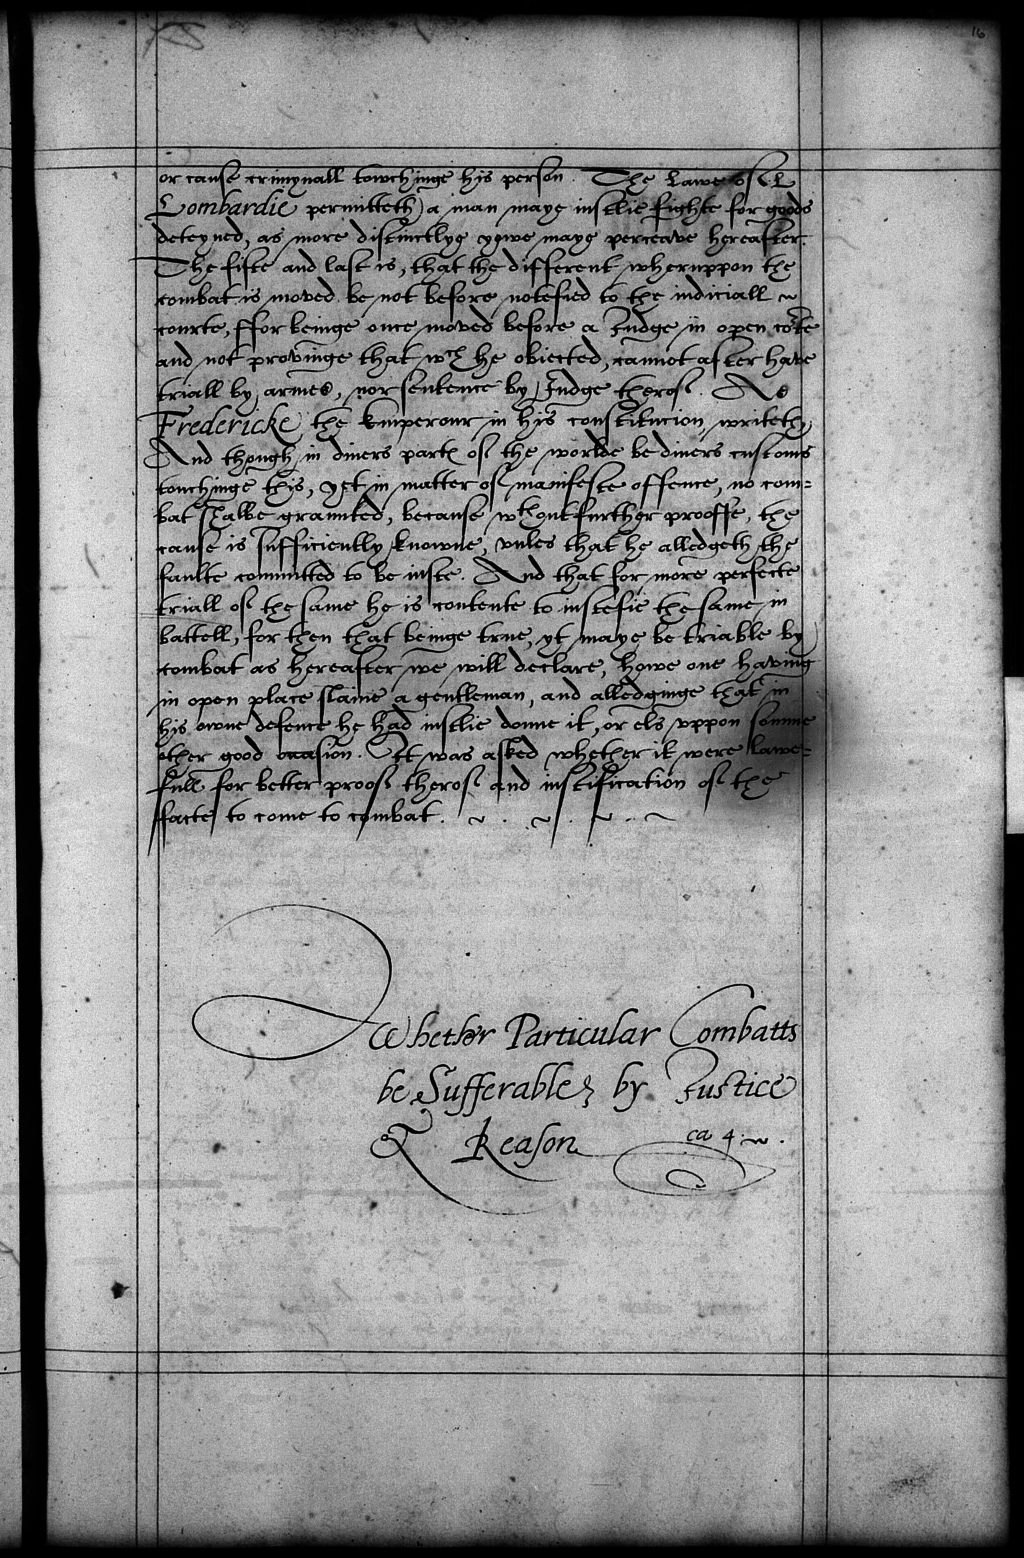 16
or cause crimynall towchinge his person. The Lawe of
Lombardie permitteth a man maye iustlie fighte for goods
deteyned, as more distinctlye yowe maye perceave hereafter.
The fifte and last is, that the different wheruppon the
combat is moved be not before notefied to the iudiciall
courte, ffor beinge once moved before a Iudge in open co:rte
and not provinge that wch he obiected, cannot after have
triall by armes, nor sentence by Iudge therof. As
Fredericke the Emperour in his constitucion writeth,
And though in diuers parts of the worlde be diuers customs
touchinge this, yet in matter of manifeste offence, no com=
bat shalbe graunted, because wthout further prooffe, the
cause is sufficiently knowne, vnles that he alledgeth the
faulte committed to be iuste. And that for more perfecte
triall of the same he is contente to iustefie the same in
battell, for then that beinge true, yt maye be triable by
combat as hereafter we will declare, howe one having
in open place slaine a gentleman, and alledginge that in
his owne defence he had iustlie donne it, or els vppon somme
other good occasion. It was asked whether it were lawe=
full for better proof therof and iustification of the
facte to come to combat.
Whether Particular Combatts
be Sufferable by Iustice
& Reason ca 4.